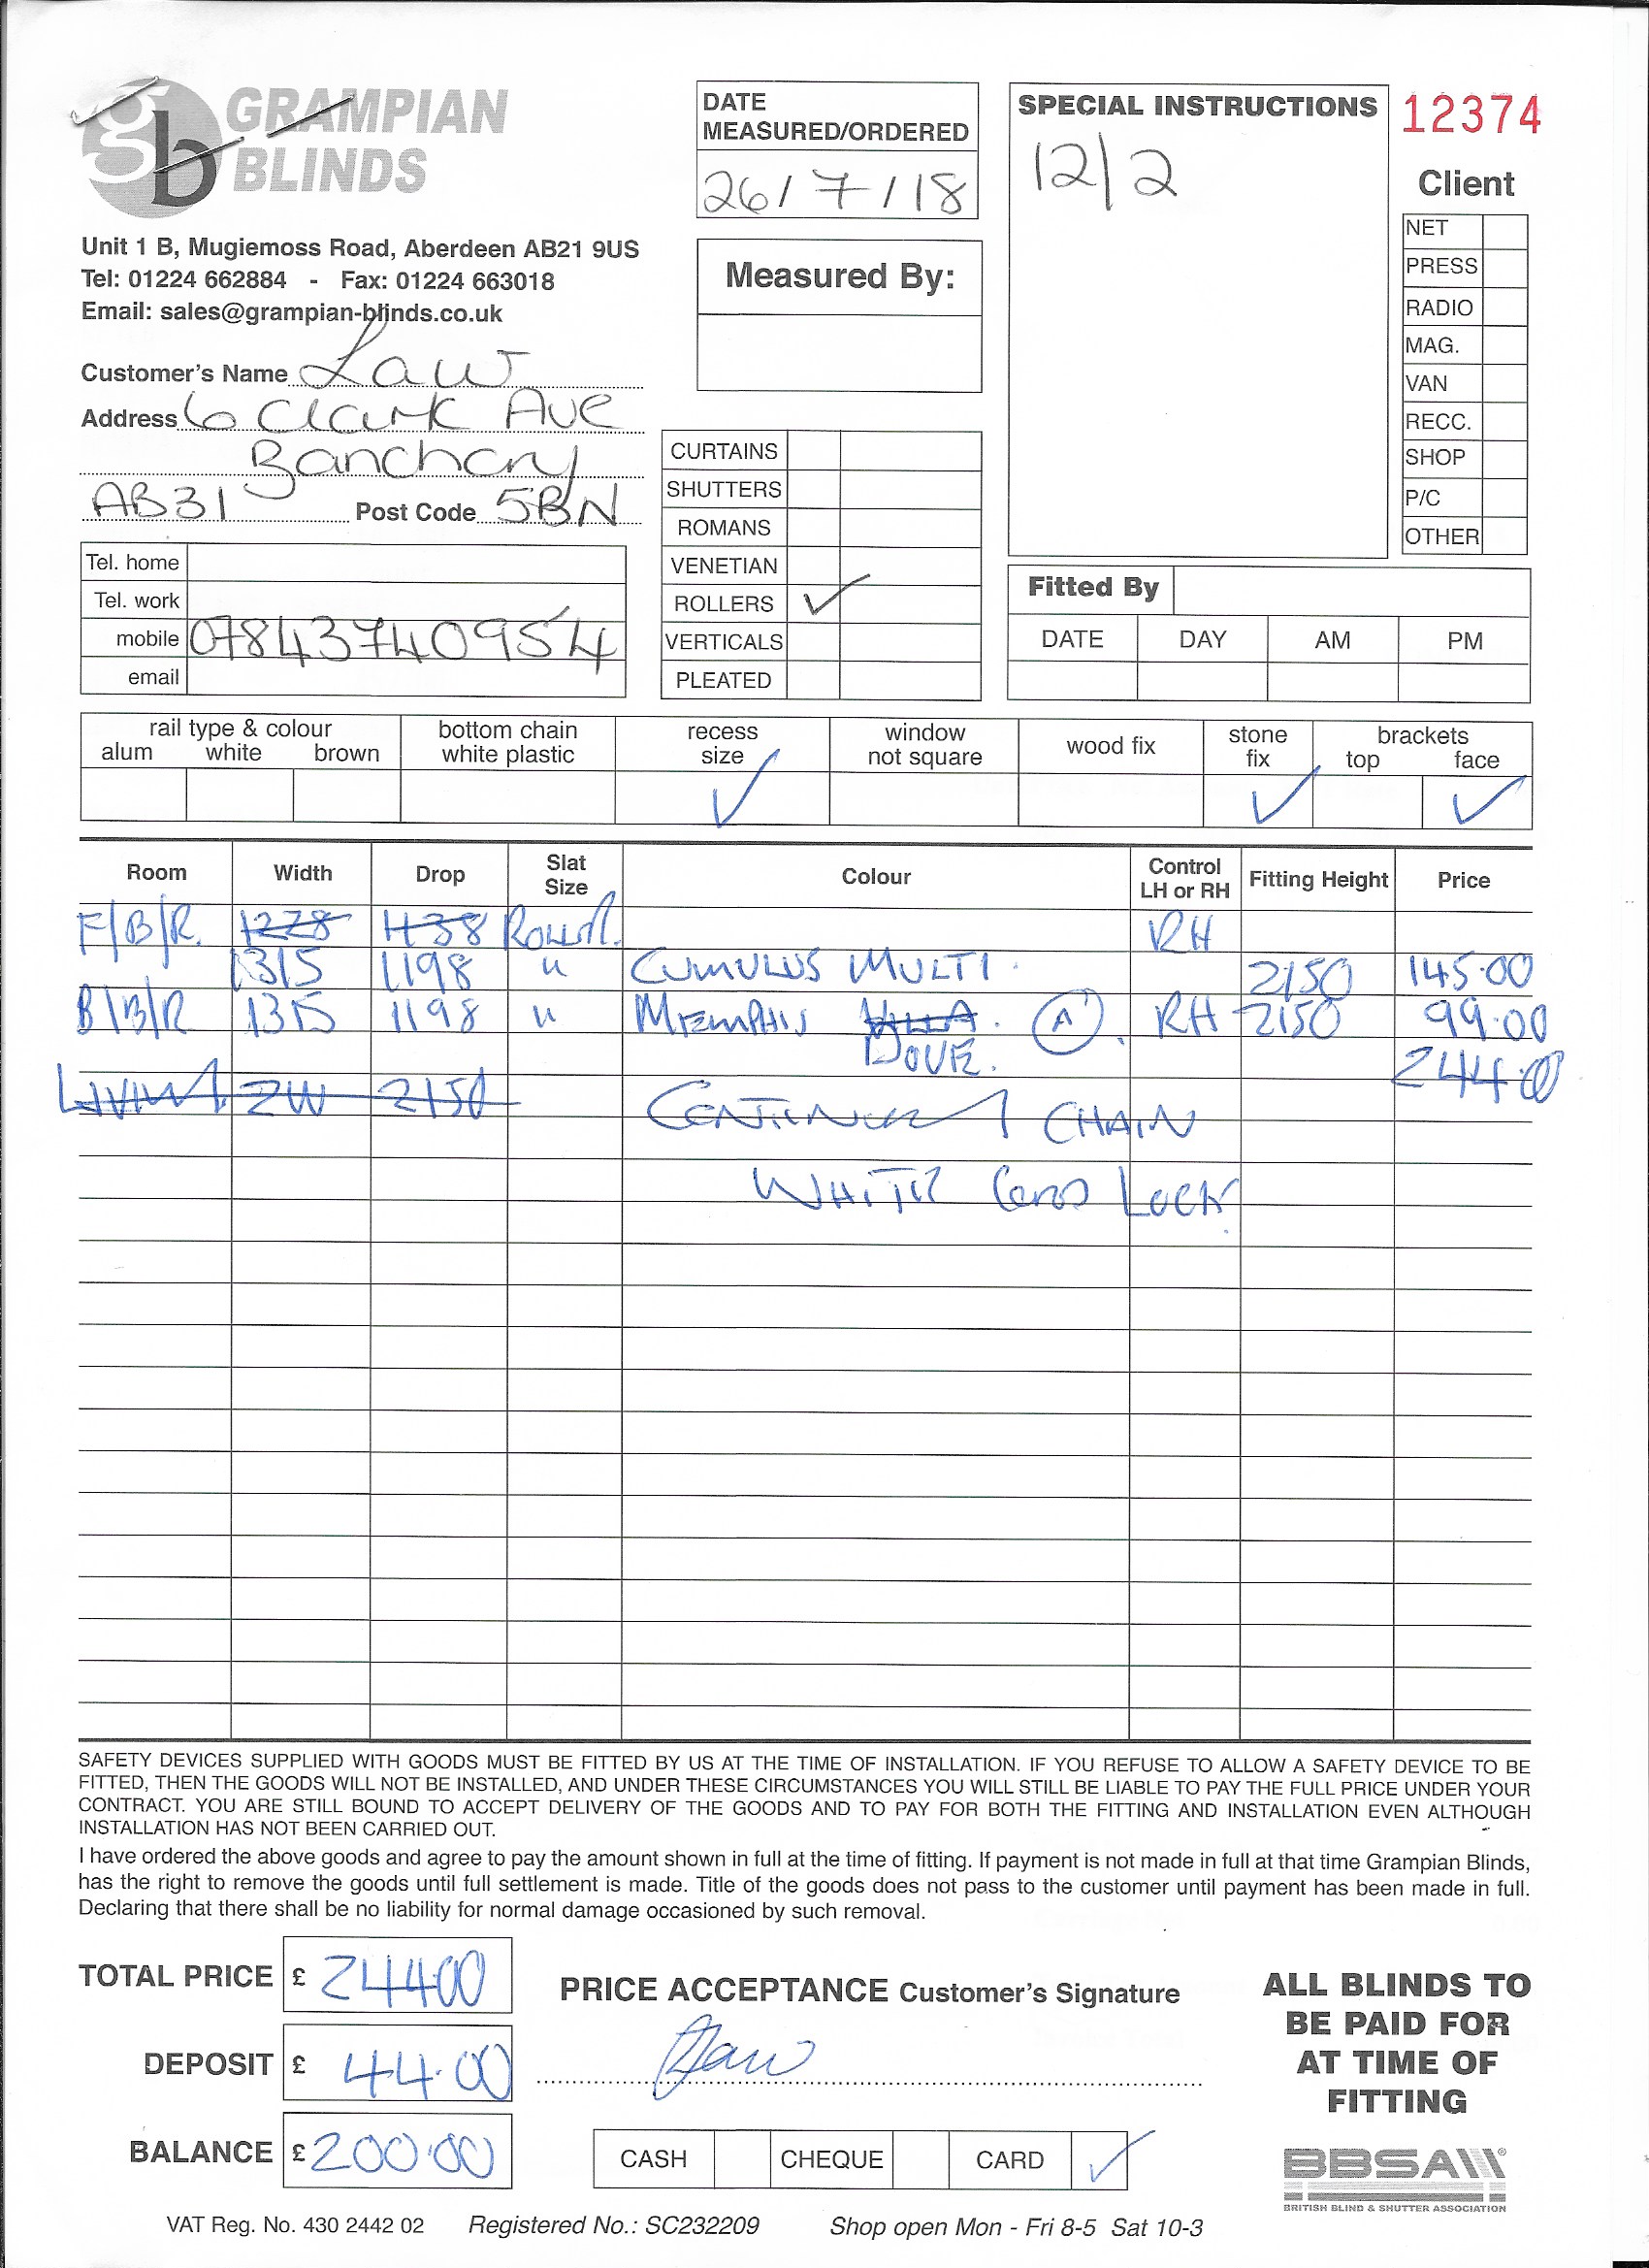 gb GRAMPIAN BLINDS
Unit 1 B, Mugiemoss Road, Aberdeen AB21 9US
Tel: 01224 662884 - Fax: 01224 663018
Email: sales@grampian-blinds.co.uk
Customer's Name Law
Address 6 Clark Ave
Banchory
AB31 Post Code 5BN
Tel. home
Tel. work
mobile 07843740954
email
DATE
MEASURED/ORDERED
26/7/18
Measured By:
CURTAINS
SHUTTERS
ROMANS
VENETIAN
ROLLERS ✓
VERTICALS
PLEATED
SPECIAL INSTRUCTIONS
12/2
12374
Client
NET
PRESS
RADIO
MAG.
VAN
RECC.
SHOP
P/C
OTHER
Fitted By
DATE DAY AM PM
rail type & colour
alum white brown
bottom chain
white plastic
recess
size ✓
window
not square
wood fix
stone
fix ✓
brackets
top face ✓
Room Width Drop Slat Size Colour Control LH or RH Fitting Height Price
F/B/R. 1228 1138 ROLLER. RH
1315 1198 " CUMULUS MULTI. 2150 145.00
B/B/R 1315 1198 " MEMPHIS (A). RH 2150 99.00
DOVE. 244.00
LIVING ZW 2150 CHAIN
WHITE LOCK
SAFETY DEVICES SUPPLIED WITH GOODS MUST BE FITTED BY US AT THE TIME OF INSTALLATION. IF YOU REFUSE TO ALLOW A SAFETY DEVICE TO BE
FITTED, THEN THE GOODS WILL NOT BE INSTALLED, AND UNDER THESE CIRCUMSTANCES YOU WILL STILL BE LIABLE TO PAY THE FULL PRICE UNDER YOUR
CONTRACT. YOU ARE STILL BOUND TO ACCEPT DELIVERY OF THE GOODS AND TO PAY FOR BOTH THE FITTING AND INSTALLATION EVEN ALTHOUGH
INSTALLATION HAS NOT BEEN CARRIED OUT.
I have ordered the above goods and agree to pay the amount shown in full at the time of fitting. If payment is not made in full at that time Grampian Blinds,
has the right to remove the goods until full settlement is made. Title of the goods does not pass to the customer until payment has been made in full.
Declaring that there shall be no liability for normal damage occasioned by such removal.
TOTAL PRICE £ 244.00
DEPOSIT £ 44.00
BALANCE £ 200.00
PRICE ACCEPTANCE Customer's Signature
Law
CASH CHEQUE CARD ✓
ALL BLINDS TO
BE PAID FOR
AT TIME OF
FITTING
BBSA
BRITISH BLIND & SHUTTER ASSOCIATION
VAT Reg. No. 430 2442 02 Registered No.: SC232209 Shop open Mon - Fri 8-5 Sat 10-3